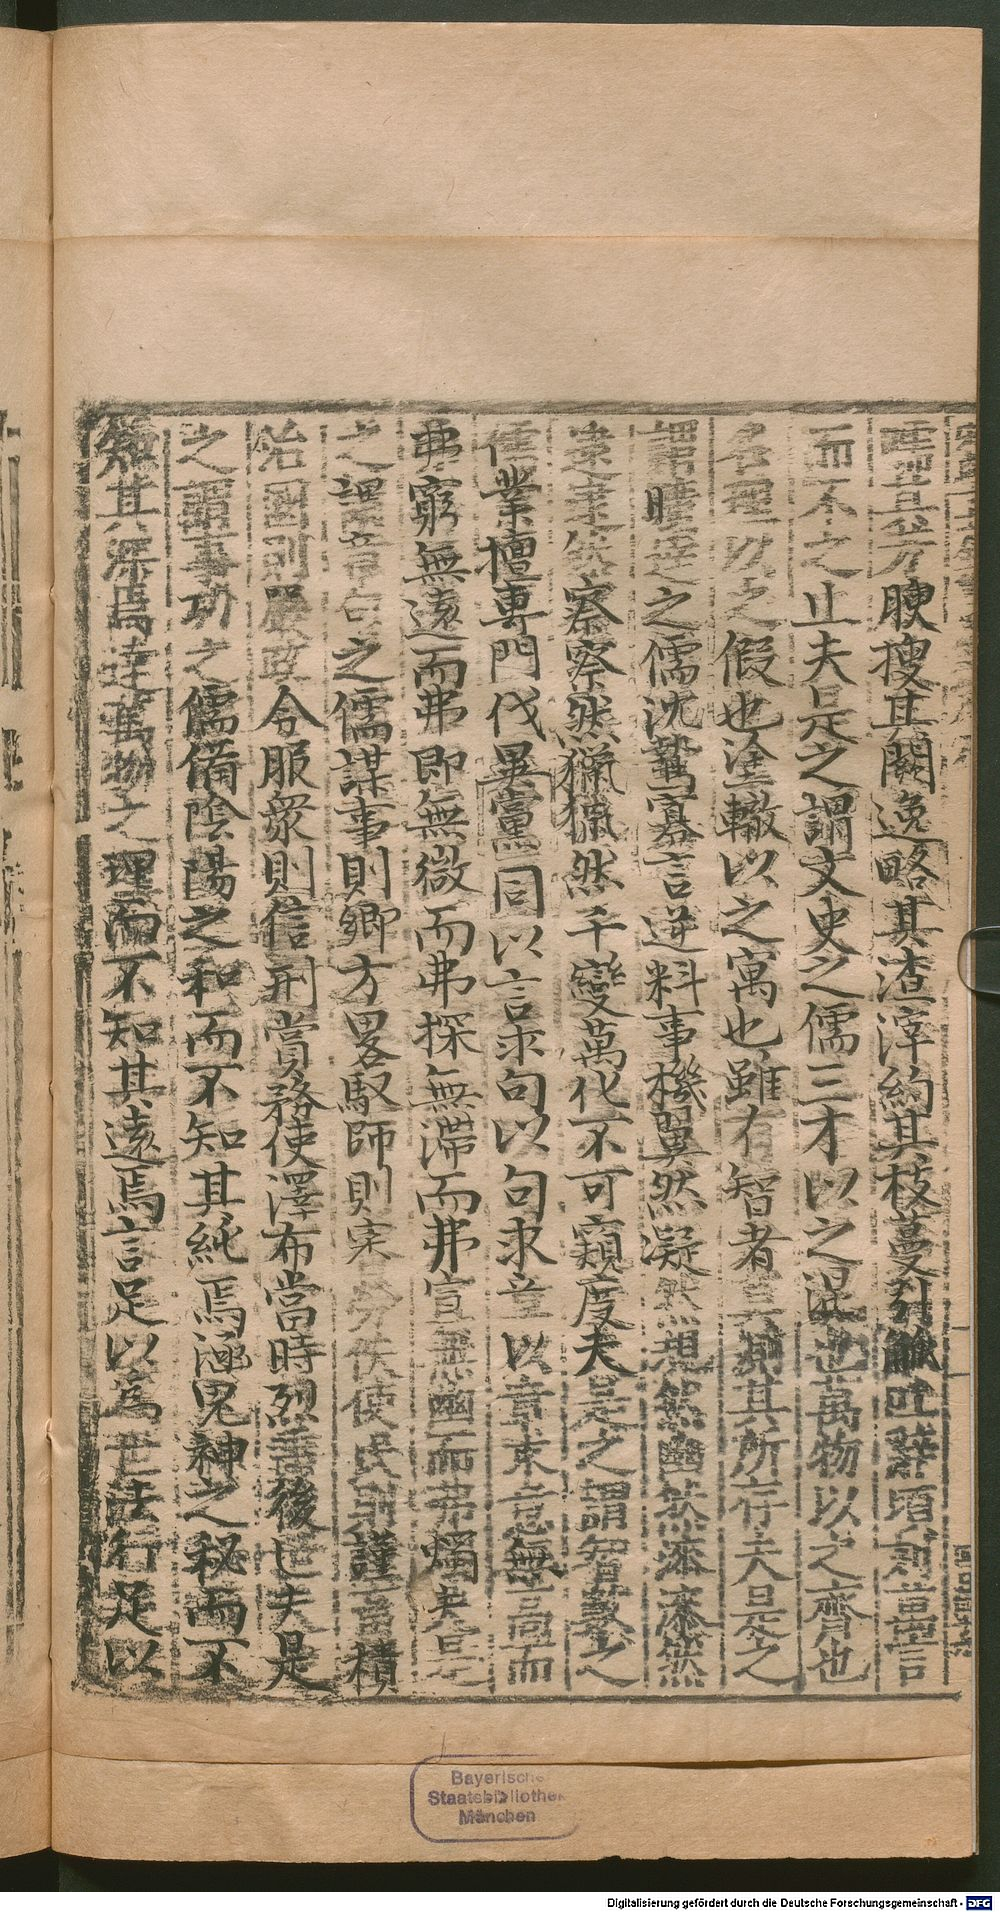 醢且芳腴搜其闕逸略其渣滓約其枝蔓引觚吐辭頃刻萬言
而不之止夫是之謂文史之儒三才以之混也萬物以之齊也
名理以之假也塗轍以之寓也雖有智者莫測其所存夫是之
謂曠達之儒沈鷙寡言逆料事機翼然凝然然幽然漆漆然
逐逐然察察然獵獵然千變萬化不可窺度夫是之謂智數之
儒業擅專門伐異黨同以言求句以句求章以章求意無高而
弗窮無遠而弗即無微而弗探無滯而弗宣無幽而弗燭夫是
之謂章句之儒謀事則鄉方畧馭師則審勞佚使民則謹畜積
治國則嚴政令服衆則信刑賞務使澤布當時烈垂後世夫是
之謂事功之儒備陰陽之和而不知其純焉涵鬼神之秘而不
知其深焉達萬物之理而不知其遠焉言足以爲世法行足以
Bayerische
Staatsbibliothek
München
Digitalisierung gefördert durch die Deutsche Forschungsgemeinschaft - DFG